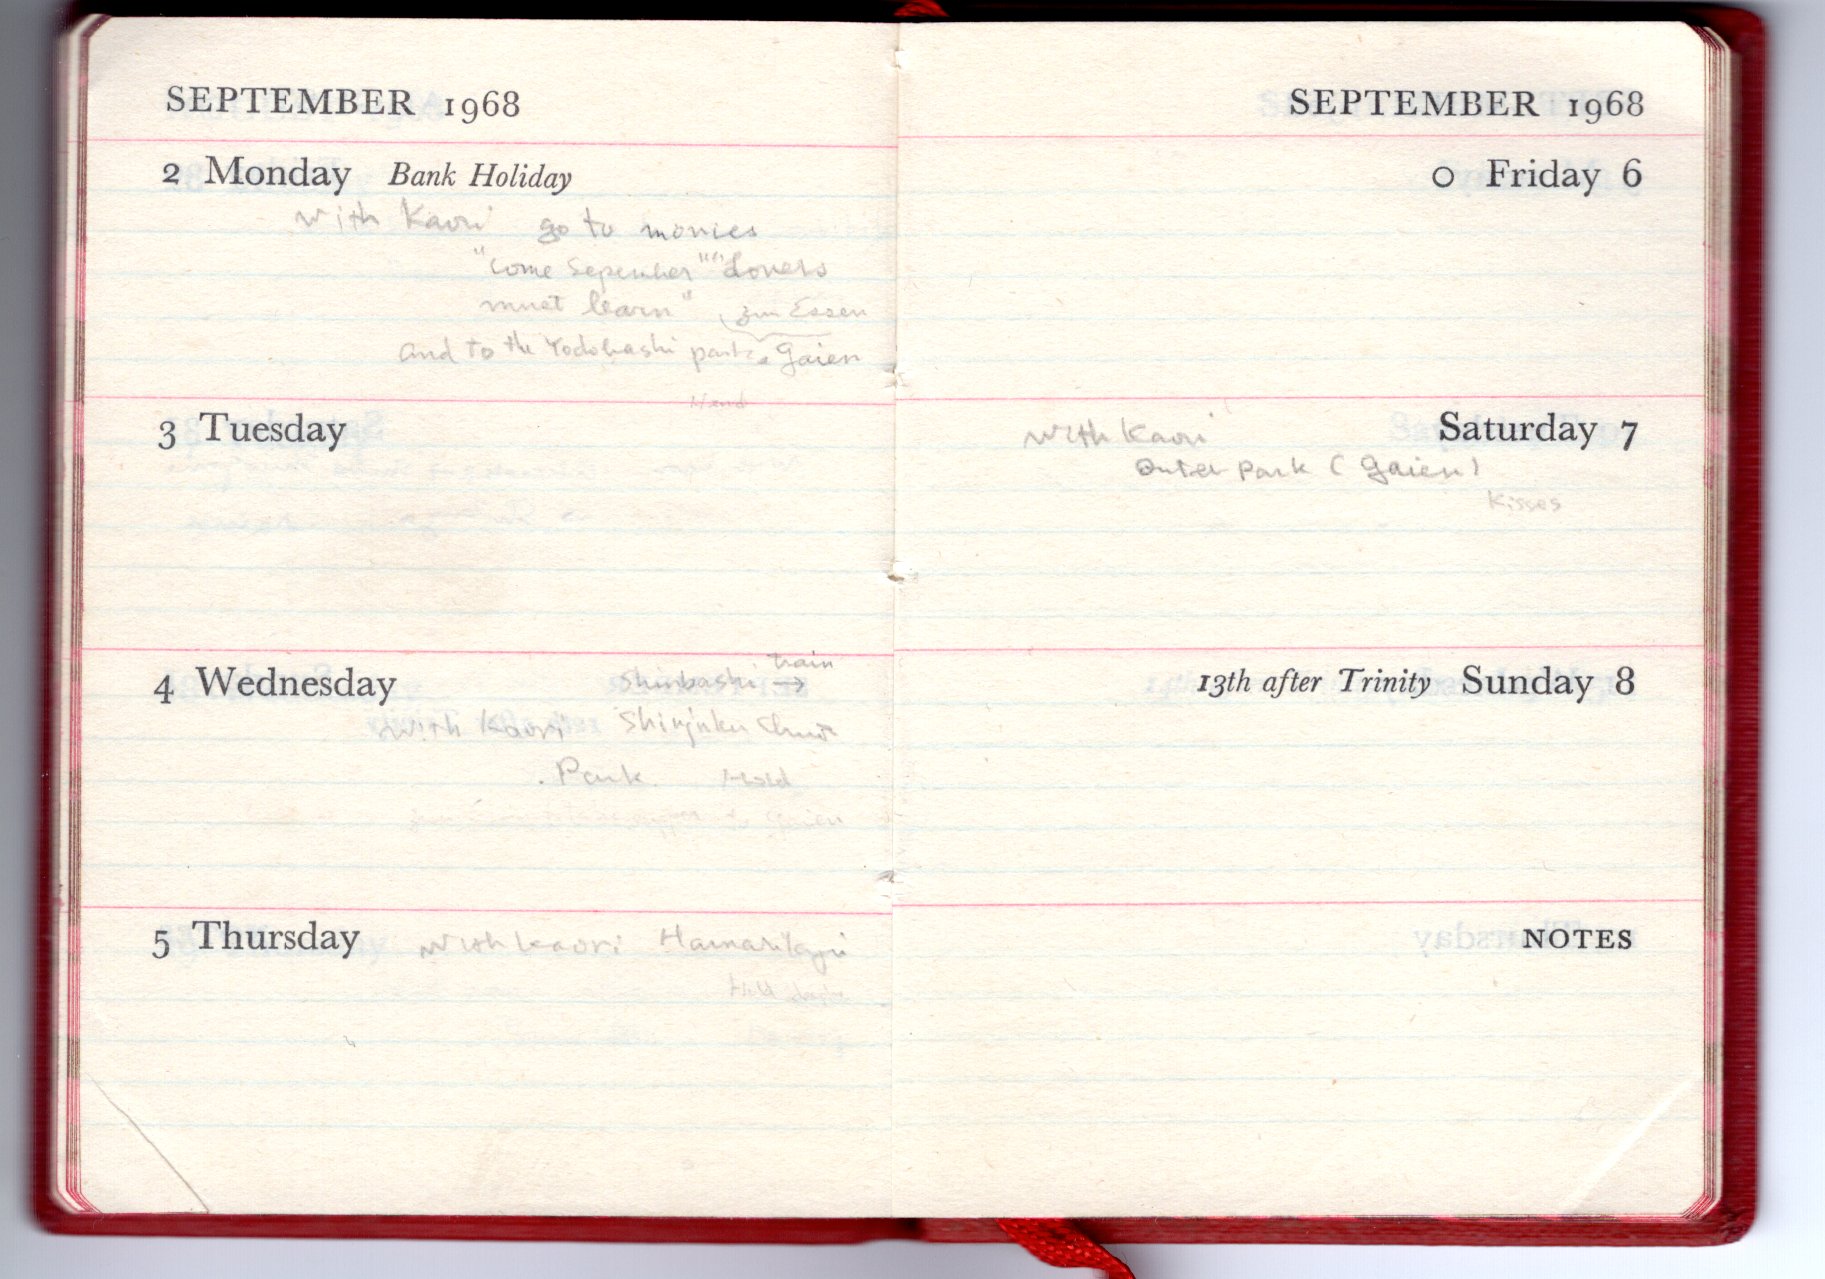 SEPTEMBER 1968
2 Monday Bank Holiday
with Kaori go to movies
"Come Sepember" "Lovers
must learn" zum Essen
and to the Yodobashi park. Gaien
Hand
3 Tuesday
4 Wednesday
train
Shinbashi →
with Kaori Shinjuku
. Park Hold
Gaien
5 Thursday with Kaori Hamarikyu
SEPTEMBER 1968
O Friday 6
Saturday 7
with Kaori
Outer park (Gaien)
Kisses
13th after Trinity Sunday 8
NOTES